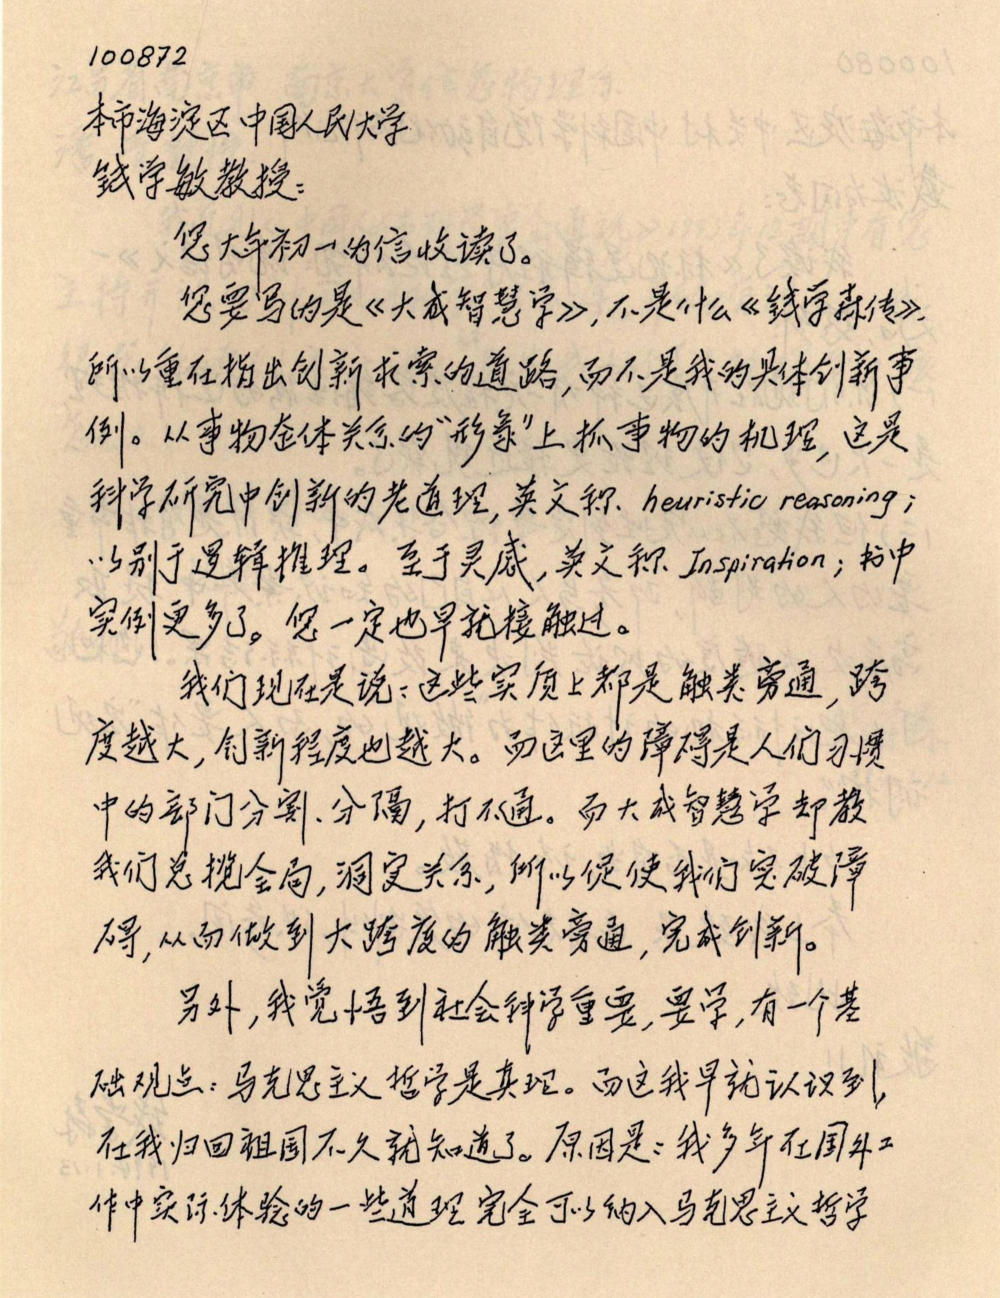 100872
本市海淀区中国人民大学
钱学敏教授：
您大年初一的信收读了。
您要写的是《大成智慧学》，不是什么《钱学森传》，
所以重在指出创新求索的道路，而不是我的具体创新事
例。从事物整体关系的“形象”上抓事物的机理，这是
科学研究中创新的老道理，英文称 heuristic reasoning；
以别于逻辑推理。至于灵感，英文称 Inspiration；书中
实例更多了。您一定也早就接触过。
我们现在是说：这些实质上都是触类旁通，跨
度越大，创新程度也越大。而这里的障碍是人们习惯
中的部门分割、分隔，打不通。而大成智慧学却教
我们总揽全局，洞察关系，所以促使我们突破障
碍，从而做到大跨度的触类旁通，完成创新。
另外，我觉悟到社会科学重要，要学，有一个基
础观点：马克思主义哲学是真理。而这我早就认识到，
在我归回祖国不久就知道了。原因是：我多年在国外工
作中实际体验的一些道理完全可以纳入马克思主义哲学